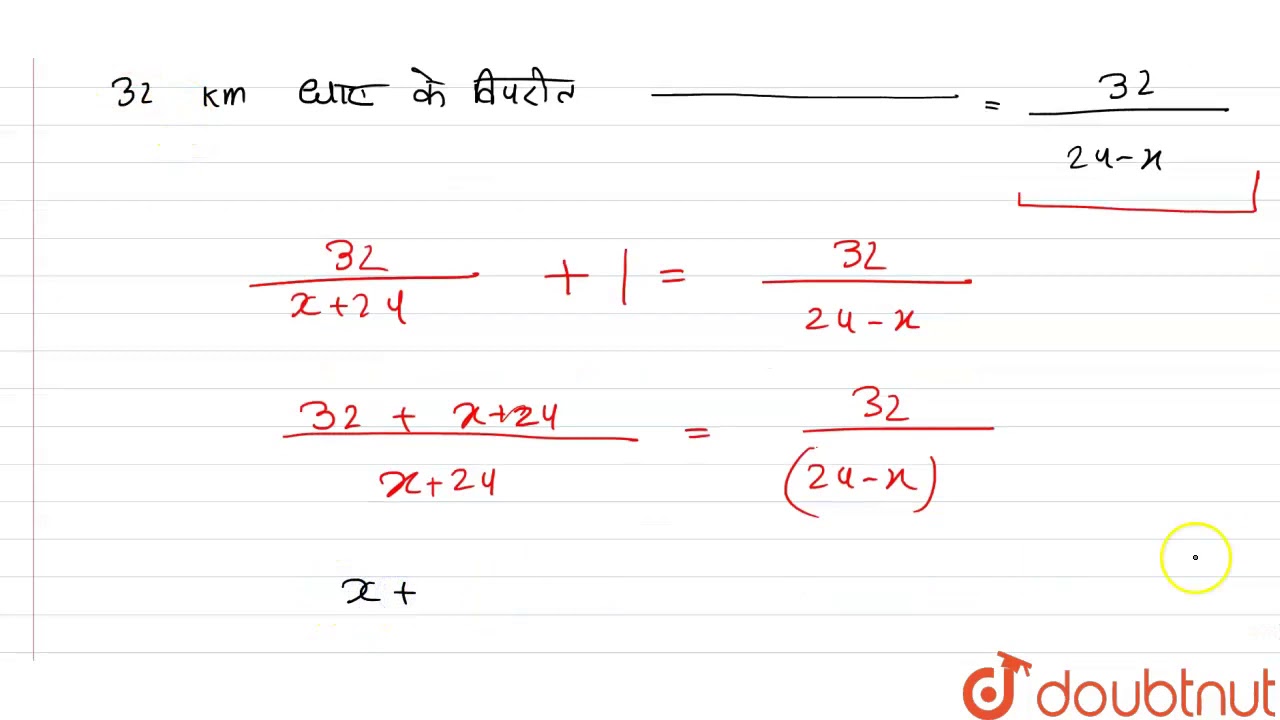 32 km धारा के विपरीत ___ = 32 / 24-x
32 / x+24 + 1 = 32 / 24-x
32 + x+24 / x+24 = 32 / (24-x)
x +
doubtnut